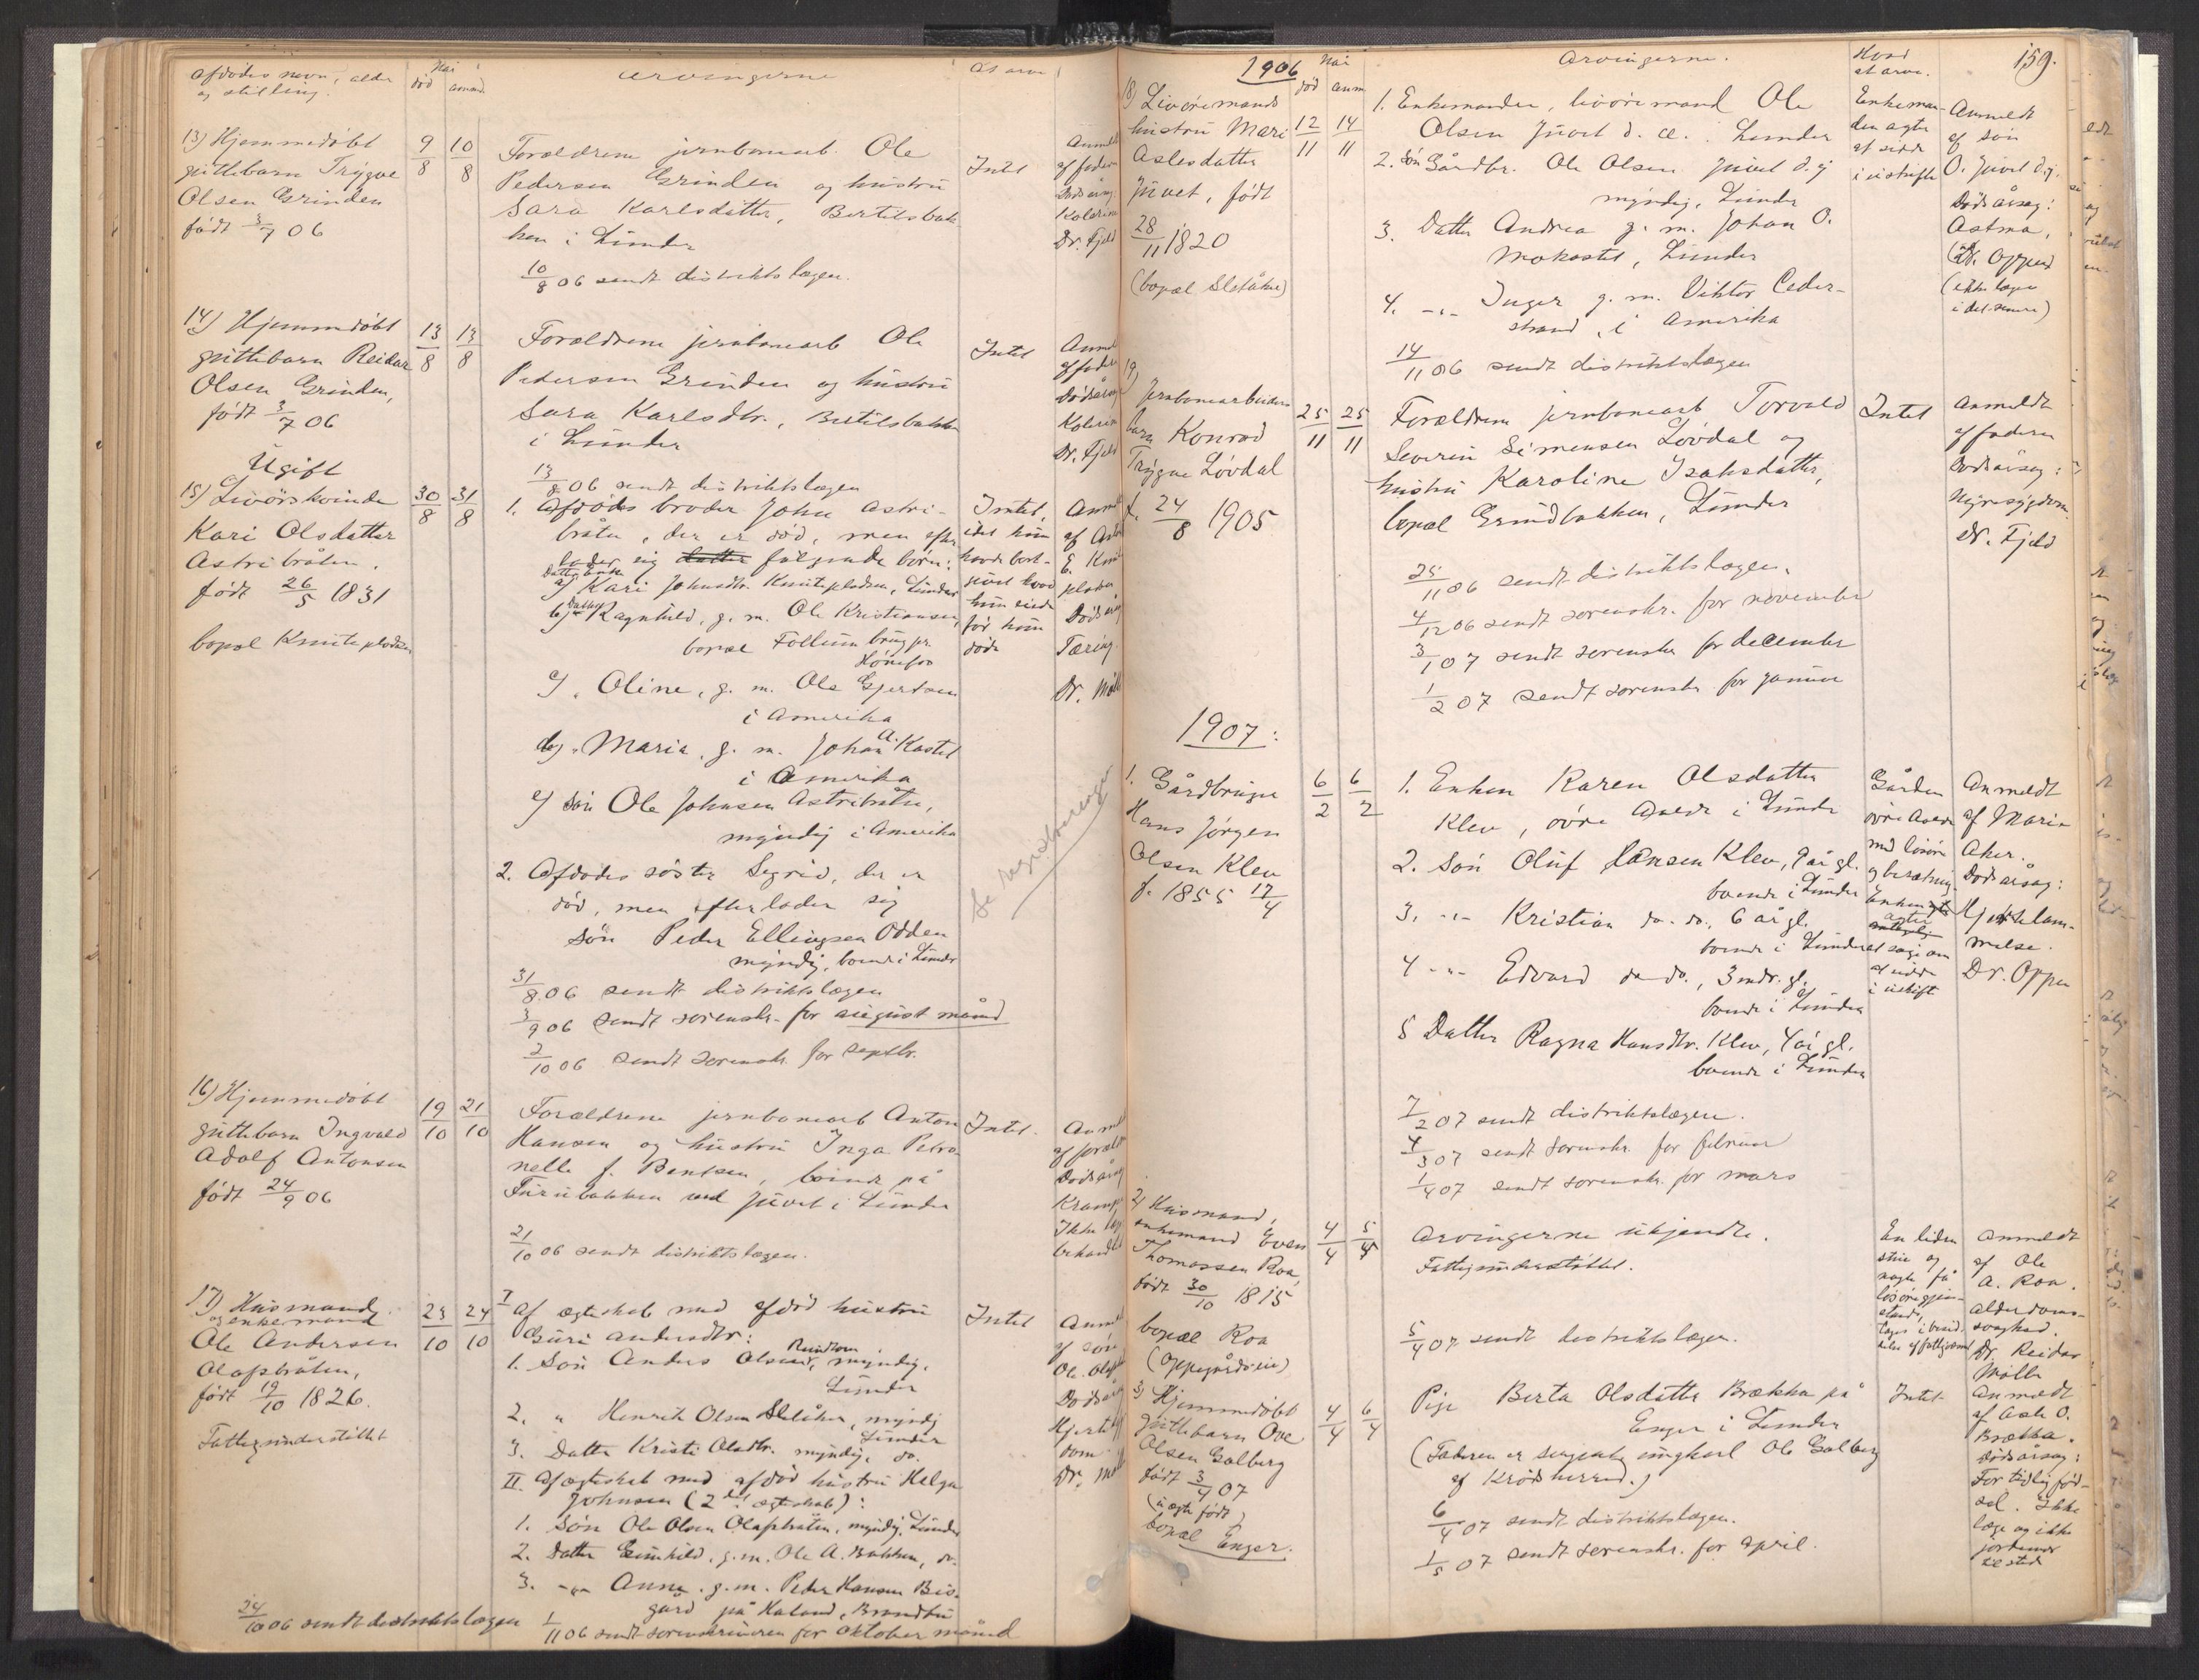 Afdödes navn, alder
og stilling.
Når
död
anm.
Arvingerne
At arve
13) Hjemmedöbt
guttebarn Trygve
Olsen Grinden
født 3/7 06
9/8
10/8
Forældrene jernbanearb. Ole
Pedersen Grinden og hustru
Sara Karlsdatter, Bertilsbak-
ken i Lunder
10/8 06 sendt distriktslægen.
Intet
Anmeldt
af faderen
Dödsårsag
Kolerine
Dr. Fjeld
14) Hjemmedöbt
guttebarn Reidar
Olsen Grinden,
født 3/7 06
13/8
13/8
Forældrene jernbanearb Ole
Pedersen Grinden og hustru
Sara Karlsdtr., Bertilsbakken
i Lunder
13/8 06 sendt distriktslægen
Intet
Anm
af fader
Dödsårsag
Kolerin
Dr. Fjeld
Ugift
15) Livörskvinde
Kari Olsdatter
Astribråten.
født 26/5 1831
bopæl Knutepladsen
30/8
31/8
1. Afdödes broder John Astri-
bråten, der er död, men efter
lader sig datter følgende börn:
Datter Enke
a) Kari Johnsdtr. Knutepladsen, Lunder
b) Datter Ragnhild, g. m. Ole Kristiansen,
bopæl Follum brug pr.
Hönefos
c) " Oline, g. m. Ole Gjertsen
i Amerika
d) " Maria, g. m. Johan A. Kastet
i Amerika
e) Sön Ole Johnsen Astribråten,
myndig i Amerika
2. Afdödes söster Sigrid, der er
död, men efterlader sig
sön Peder Ellingsen Odden
myndig, boende i Lunder
31/8 06 sendt distriktslægen
3/9 06 sendt sorenskr. for august måned
2/10 06 sendt sorenskr. for septbr.
Intet,
idet hun
havde bort-
givet hvad
hun eiede
för hun
döde
Anm
af
E. Knut
pladsen
Dödsårsag
Tæring.
Dr. Möll
Se registreringer
16) Hjemmedöbt
guttebarn Ingvald
Adolf Antonsen
født 24/9 06
19/10
21/10
Forældrene jernbanearb Anton
Hansen og hustru Inga Petro-
nelle f. Bentsen, boende på
Furubakken ved Juvet i Lunder
21/10 06 sendt distriktslægen.
Intet.
Anm
af foræld
Dödsårsag
Krampe
Ikke læge
behandlet
17) Husmand
og enkemand
Ole Andersen
Olapsbråten,
født 19/10 1826.
Fattigunderstöttet
23/10
24/10
I Af ægteskab med afdöd hustru
Guri Andersdtr:
1. Sön Anders Olsen, myndig,
Lunder
2. " Henrik Olsen Sletåker, myndig
Lunder
3. Datter Kristi Olsdtr. myndig, do.
II. Af ægteskab med afdöd hustru Helga
Johnsen (2det ægteskab):
1. Sön Ole Olsen Olapsbråten, myndig, Lunder
2. Datter Gunhild, g. m. Ole A. Bakken, do.
3. -"- Anne, g. m. Peder Hansen Bis-
gård på Haland, Brandbu
24/10 06 sendt distriktslægen
1/11 06 sendt sorenskriveren for oktober måned
Intet
Anm
af sön
Ole Olaps
Dödsårsag
Hjertesyg
dom.
Dr. Möll
1906
Når
död
anm
Arvingerne.
Hvad
at arve.
159.
18) Livöremands
hustru Mari
Aslesdatter
Juvet, født
28/11 1820
(bopæl Sletåker)
12/11
14/11
1. Enkemanden, livöremand Ole
Olsen Juvet d. æ. Lunder
2. Sön Gårdbr. Ole Olsen Juvet d. y
myndig, Lunder
3. Datter Andrea g. m. Johan O.
Mokastet, Lunder
4. -"- Inger g. m. Viktor Ceder-
strand, i Amerika
14/11 06 sendt distriktslægen
Enkeman-
den agter
at sidde
i uskifte
Anmeldt
af sön
O. Juvet d.y.
Dödsårsag:
Astma,
(Dr. Oppen
(ikke læge
i det senere)
19)
Jernbanearbeider
barn Konrad
Trygve Lövdal
f. 24/8 1905
25/11
25/11
Forældrene jernbanearb Torvald
Severin Simensen Lövdal og
hustru Karoline Isaksdatter,
bopæl Grindbakken, Lunder
25/11 06 sendt distriktslægen.
4/12 06 sendt sorenskr. for november
3/1 07 sendt sorenskr for december
1/2 07 sendt sorenskr. for januar
Intet
Anmeldt
af faderen
Dödsårsag:
Nyresygdom.
Dr. Fjeld
1907:
1. Gårdbruger
Hans Jörgen
Olsen Klev
f. 1855 17/4
6/2
6/2
1. Enken Karen Olsdatter
Klev, övre Aveds i Lunder
2. Sön Oluf Hansen Klev, 9 år gl.
boende i Lunder
3. -"- Kristian do. do. 6 år gl.
boende i Lunder
4 -"- Edvard do do., 3 mdr. gl.
boende i Lunder
5 Datter Ragna Hansdtr. Klev, 4 år gl.
boende i Lunder
7/2 07 sendt distriktslægen.
4/3 07 sendt sorenskr. for februar
1/4 07 sendt sorenskr. for mars
Gården
övre Aveds
med lösöre
og besætning.
Enken
agter
at söge om
at sidde
i uskift
Anmeldt
af Marin
Aker.
Dödsårsag:
Hjertelam-
melse.
Dr. Oppen
2) Husmand,
enkemand Even
Thomassen Roa,
født 30/10 1815
bopæl Roa
(Oppegårdseie)
4/4
5/4
Arvingerne ukjendte.
Fattigunderstöttet.
5/4 07 sendt distriktslægen.
En liden
stue og
nogle få
lösöregjen-
stande,
tages i besid-
delse af fattigvæsenet
Anmeldt
af Ole
A. Roa.
Alderdoms-
svaghed.
Dr. Reidar
Möller
3) Hjemmedöbt
guttebarn Ove
Olsen Golberg
født 3/4 07
(uægte født)
bopæl Enger.
4/4
6/4
Pige Berta Olsdatter Brækka på
Enger i Lunder
(Faderen er sergeant ungkarl Ole Golberg
af Krödsherred.)
6/4 07 sendt distriktslægen.
1/5 07 sendt sorenskr. for april.
Intet
Anmeldt
af Asle O.
Brækka.
Dödsårsag:
For tidlig föd-
sel. Ikke
læge og ikke
jordmor
tilsted